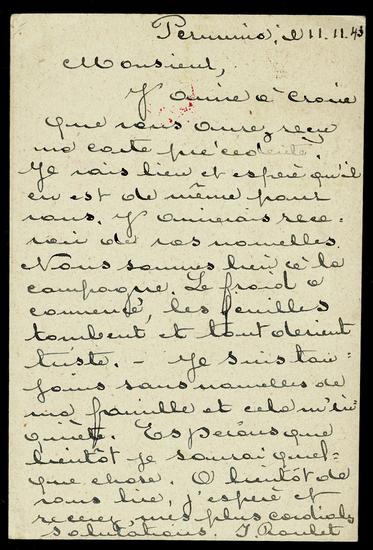 Perinuno, il 11.11.43
Monsieur,
J'aime à croire
que vous avez reçu
ma carte précédente.
Je vais bien et espère qu'il
en est de même pour
vous. J'aimerais rece-
voir de vos nouvelles.
Nous sommes bien à la
campagne. Le froid a
commencé, les feuilles
tombent et tout devient
triste. – Je suis tou-
jours sans nouvelles de
ma famille et cela m'in-
quiète. Espérons que
bientôt je saurai quel-
que chose. A bientôt de
vous lire, j'espère et
recevez, mes plus cordiales
salutations. J. Roulet